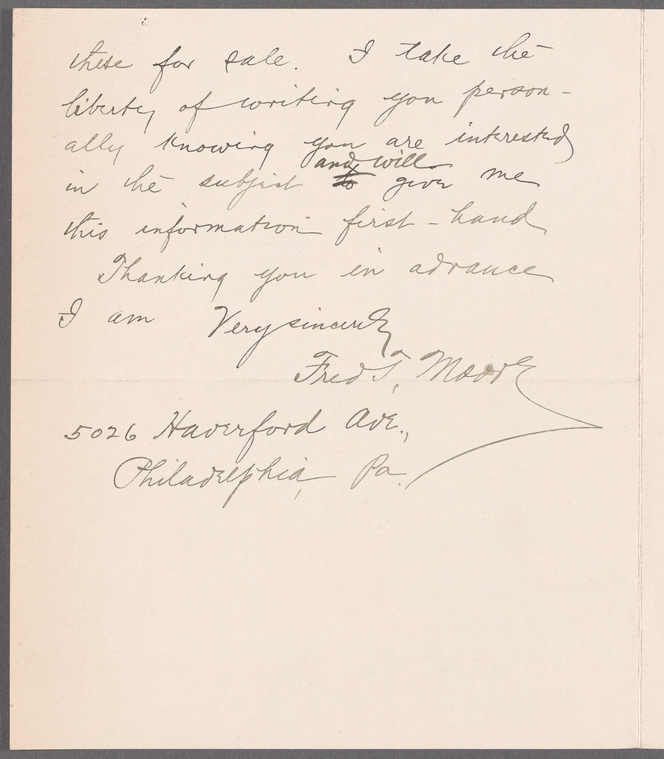 these for sale. I take the
liberty of writing you person-
ally knowing you are interested
and will
in the subject to give me
this information first-hand
Thanking you in advance
I am Very sincerely
Fred T. Moore
5026 Haverford Ave.,
Philadelphia, Pa.